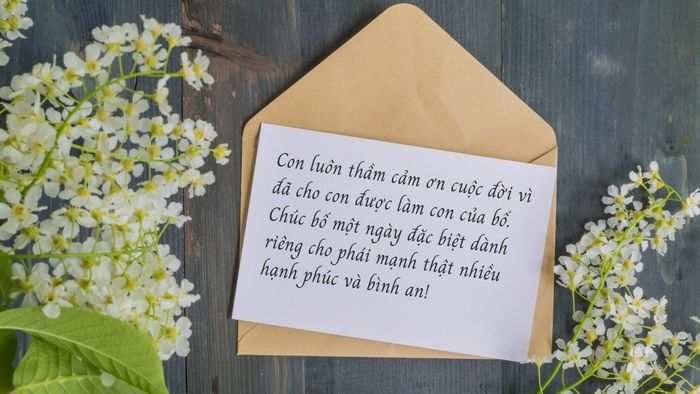 Con luôn thầm cảm ơn cuộc đời vì
đã cho con được làm con của bố.
Chúc bố một ngày đặc biệt dành
riêng cho phái mạnh thật nhiều
hạnh phúc và bình an!